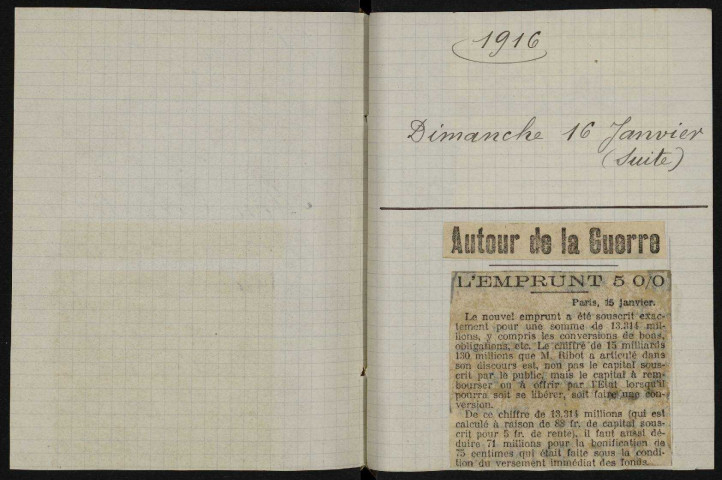 1916
Dimanche 16 Janvier
(Suite)
Autour de la Guerre
L'EMPRUNT 5 0/0
Paris, 15 janvier.
Le nouvel emprunt a été souscrit exac-
tement pour une somme de 13.314 mil-
lions, y compris les conversions de bons,
obligations, etc. Le chiffre de 15 milliards
130 millions que M. Ribot a articulé dans
son discours est, non pas le capital sous-
crit par le public, mais le capital à rem-
bourser ou à offrir par l'Etat lorsqu'il
pourra soit se libérer, soit faire une con-
version.
De ce chiffre de 13.314 millions (qui est
calculé à raison de 88 fr. de capital sous-
crit pour 5 fr. de rente), il faut aussi dé-
duire 71 millions pour la bonification de
75 centimes qui était faite sous la condi-
tion du versement immédiat des fonds.